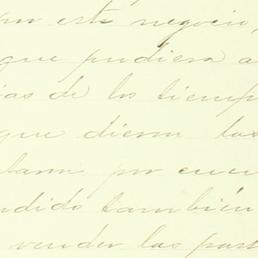 por este negocio,
que pudiera a
ias de los tiemp
que dieron las
por cuen
ndido también
vender las part